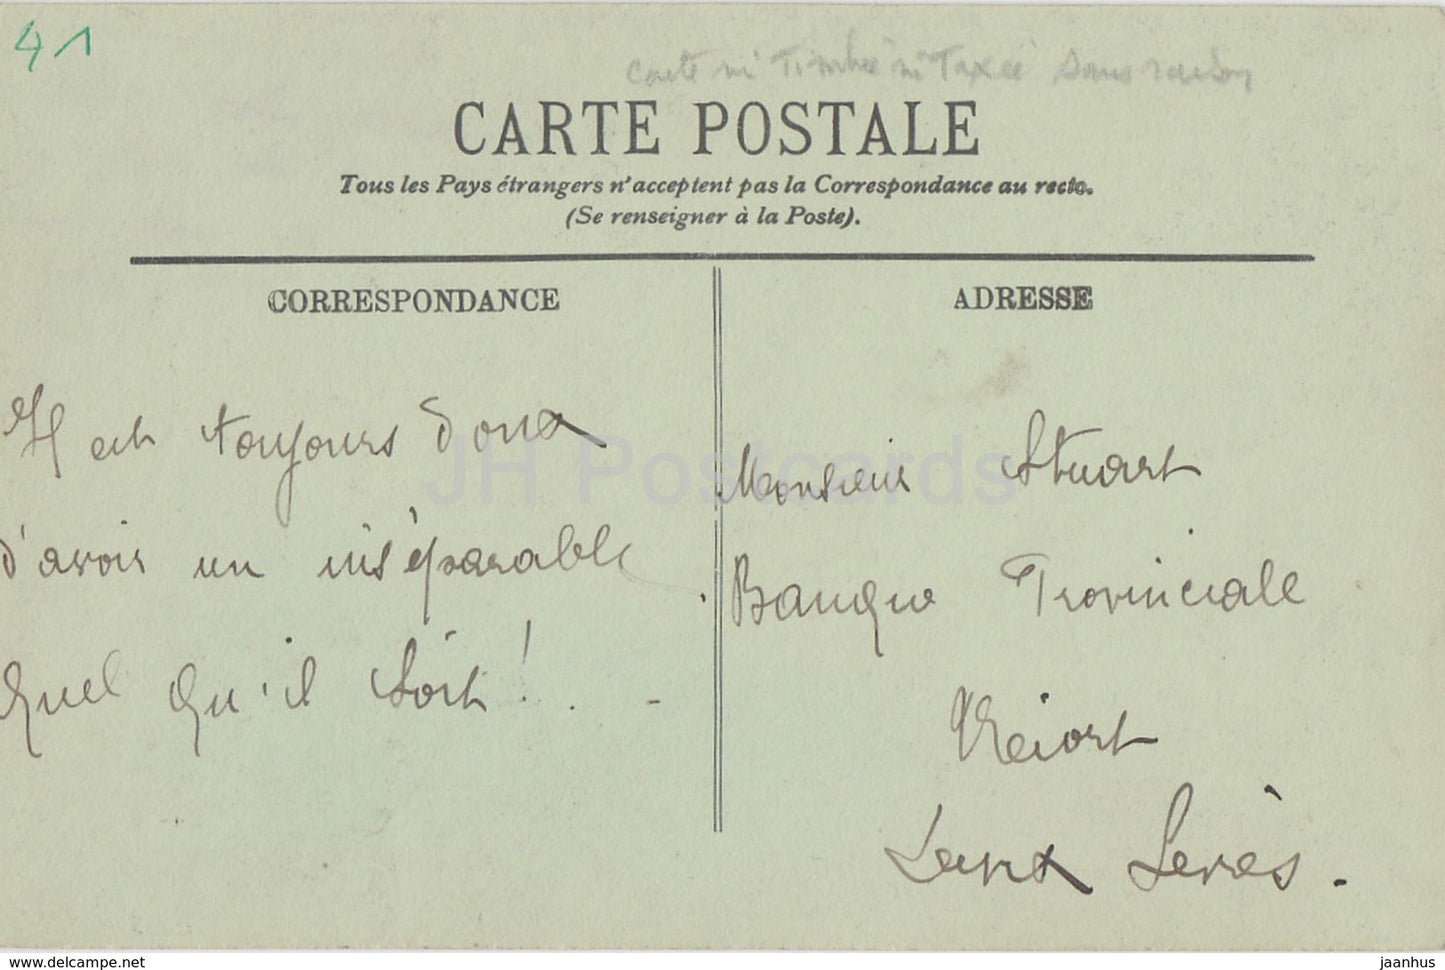 41
carte ni Timbrée ni Taxée sans raison
CARTE POSTALE
Tous les Pays étrangers n'acceptent pas la Correspondance au recto.
(Se renseigner à la Poste).
CORRESPONDANCE
ADRESSE
Il est toujours doux
d'avoir un inséparable
quel qu'il soit! . -
JH Postcards
Monsieur Stuart
Banque Provinciale
Niort
Deux Sevrès.
www.delcampe.net
jaanhus